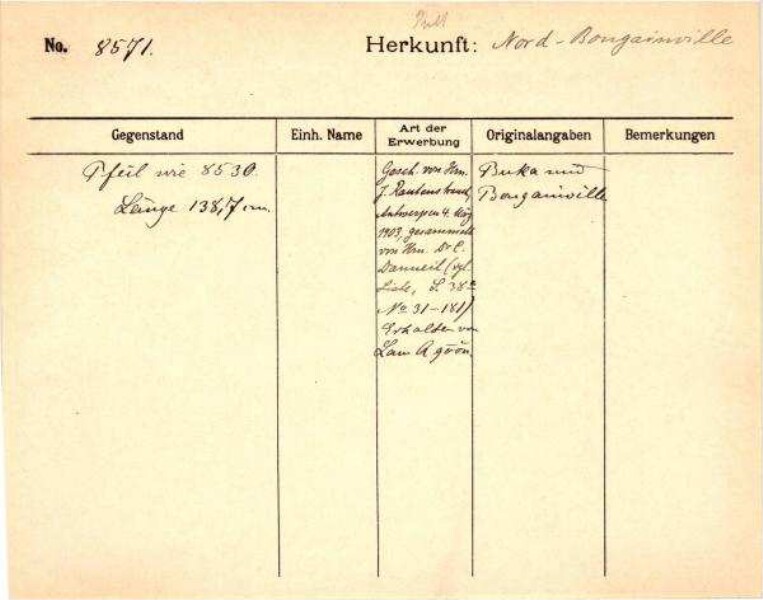 No. 8571. Herkunft: Nord-Bougainville
Gegenstand
Einh. Name
Art der
Erwerbung
Originalangaben
Bemerkungen
Pfeil wie 8530.
Länge 138,7 cm.
Gesch. von Hrn.
J. Rautenstrauch,
Antwerpen 4. März
1903, gesammelt
von Hrn. Dr C.
Danneil (vgl.
Liste, S. 38
No 31-181)
Erhalten von
Buka und
Bougainville